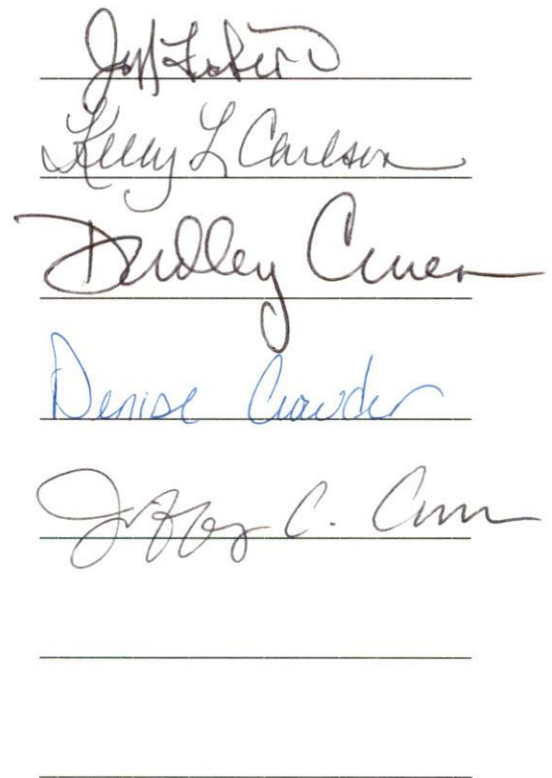 Jeff
Kelly L Carlson
Dudley
Denise Crowder
Jeffrey C.